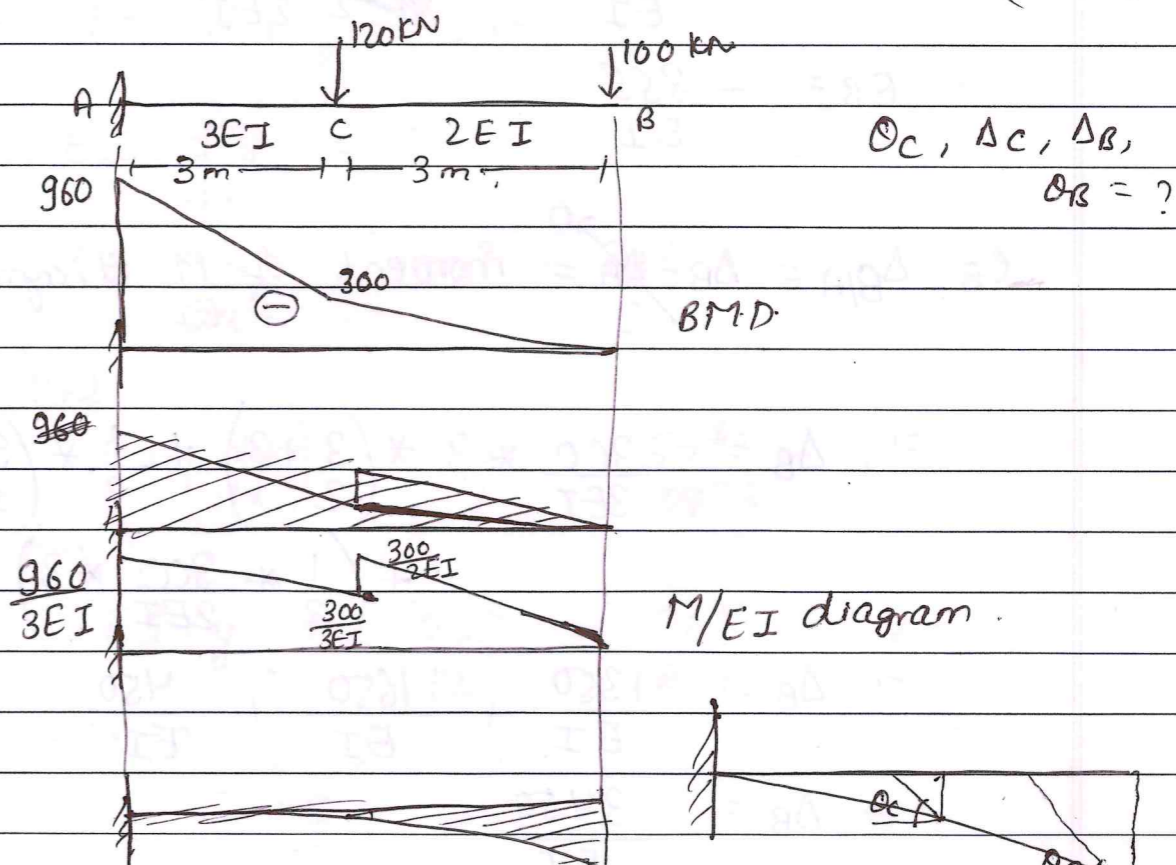 120KN
100 KN
A
3EI C 2EI B
θC, ΔC, ΔB,
3m 3m.
θB = ?
960
300
⊖
BMD.
960
960/3EI
300/3EI
300/2EI
M/EI diagram.
θC